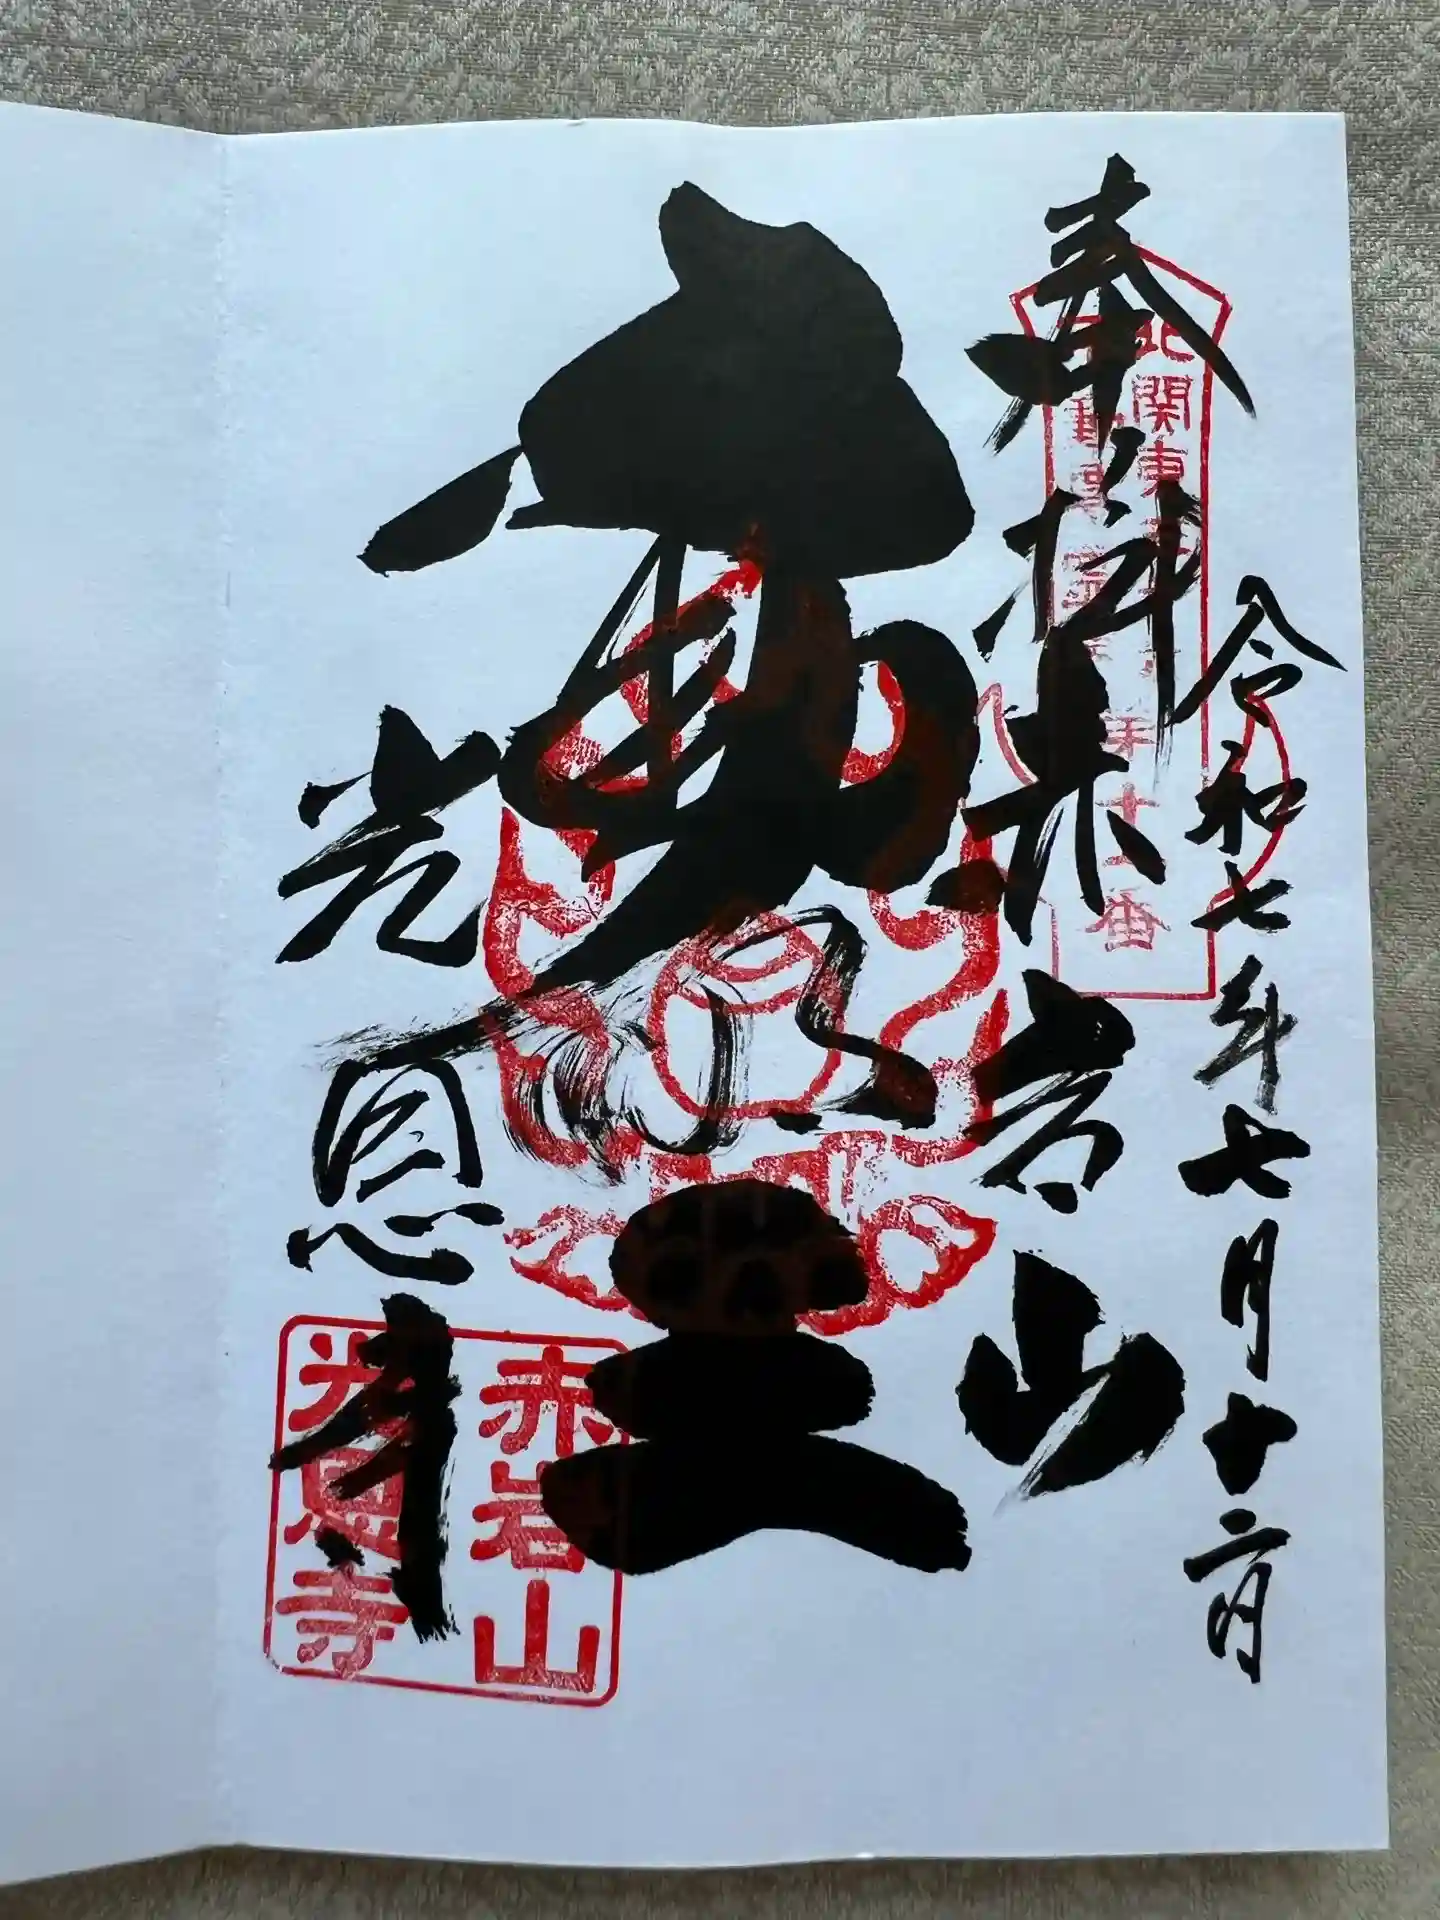 令和七年七月十二日
奉拝 赤岩山
北関東
第十二番
不動明王
光恩寺
赤岩山
光恩寺